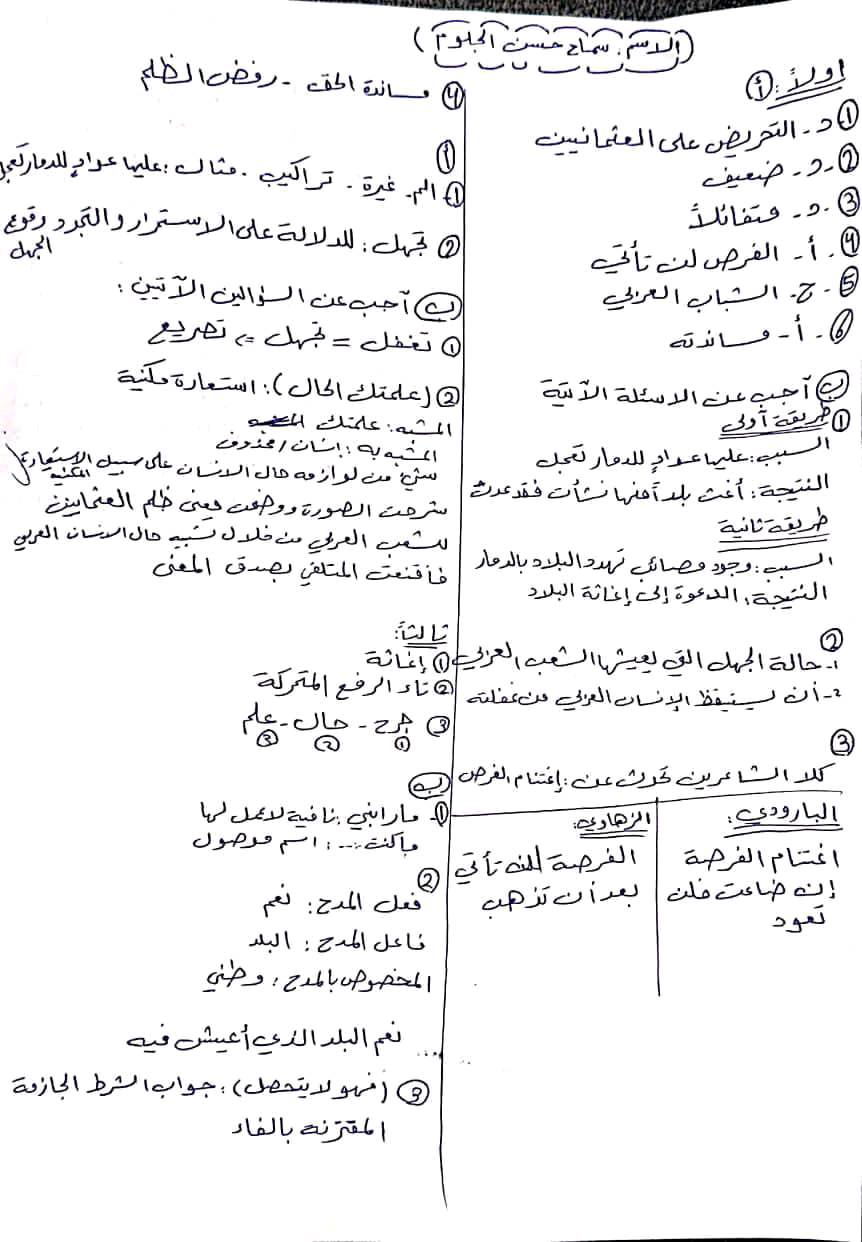 (الاسم: سماح حسن الجلوم)
اولاً: أ
1 د- التحريض على العثمانيين
2 -د- ضعيف
3 -د- متفائلاً
4 -أ- الفرص لن تأتي
5 -ج- الشباب العربي
6 -أ- مساندته
ب أجب عن الاسئلة الآتية
1 طريقة أولى
السبب: عليها عوادٍ للدمار تعجل
النتيجة: أغث بلداً منها نشأت فقد عدت
طريقة ثانية
السبب: وجود مصائب تهدد البلاد بالدمار
النتيجة: الدعوة إلى إغاثة البلاد
2
1- حالة الجهل التي يعيشها الشعب العربي
2- أن يستيقظ الإنسان العربي من غفلته
3
كلا الشاعرين تحدث عن: إغتنام الفرص
البارودي:
اغتنام الفرصة
إن ضاعت فلن
تعود
الزهاوي:
الفرصة لن تأتي
بعد أن تذهب
4 مساندة الحق - رفض الظلم
أ
1 - غيرة - تراكيب - مثال: عليها عوادٍ للدمار تعجل
2 تجهل: للدلالة على الاستمرار والتجدد وقوع
الجهل
ب أجب عن السؤالين الآتيين:
1 تغفل = تجهل => تصريع
2 (علمتك الحال): استعارة مكنية
المشبه: علمتك
المشبه به: إنسان / محذوف
شيء من لوازمه حال الانسان على سبيل الاستعارة
المكنية
شرحت الصورة ووضحت معنى ظلم العثمانيين
للشعب العربي من خلال تشبيه حال الانسان العربي
فأقنعت المتلقي بصدق المعنى
ثالثاً:
1 إغاثة
2 تاء الرفع المتحركة
3 جرح - حال - علم
1 2 3
ب
1- ما رابني: نافية لا عمل لها
ما كنت ...: اسم موصول
2
فعل المدح: نعم
فاعل المدح: البلد
المخصوص بالمدح: وطني
نعم البلد الذي أعيش فيه
3 (فهو لا يتحصل): جواب الشرط الجازمة
المقترنة بالفاء